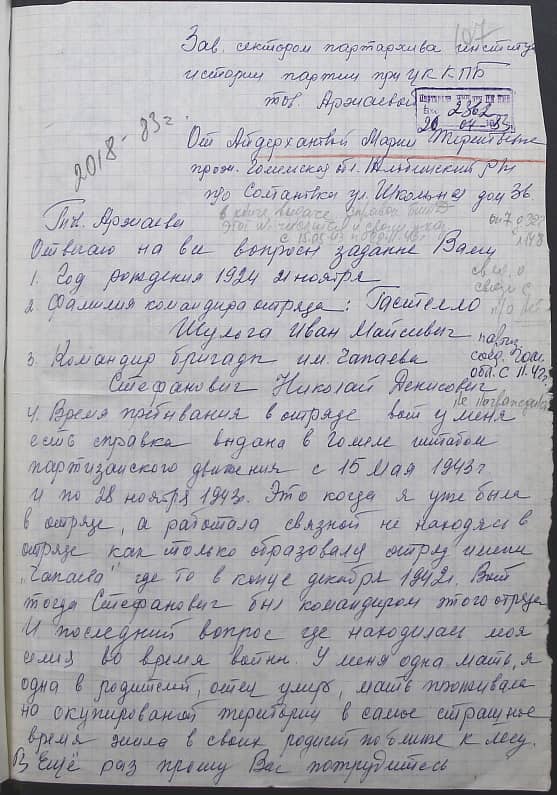 107
Зав. сектором партархива институ
истории партии при ЦК КПБ
тов. Аржаевой
2362
20 04 83
От Айдерхановой Марии Терентьевне
2018-83г.
прож. Гомельской обл. р-н
п/о Солтановка ул. Школьная дом 36.
Тов. Аржаева
в книге выдачи справок
Отвечаю на все вопросы заданне Вами
1. Год рождения 1924 21 ноября
2. Фамилия командира отряда: Гастелло
Шулога Иван Майсивич
3. Командир бригадн им. Чапаева
соед. Гом.
обл. с 11.42г.
Стефанович Николай Денисович
не награждена
4. Время пребывания в отряде вот у меня
есть справка выдана в Гомеле штабом
партизанского движения с 15 Мая 1943г
и по 28 ноября 1943г. Это когда я уже была
в отряде, а работала связной не находясь в
отряде как только образовался отряд имени
"Чапаева" где то в конце декабря 1942г. Вот
тогда Стефанович был командиром этого отряда
И последний вопрос где находилась моя
семья во время войны. У меня одна мать, я
одна в родителей, отец умер, мать проживала
на окупированой територии в самое страшное
время жила в своих родителей поближе к лесу.
Ещё раз прошу Вас потрудитесь